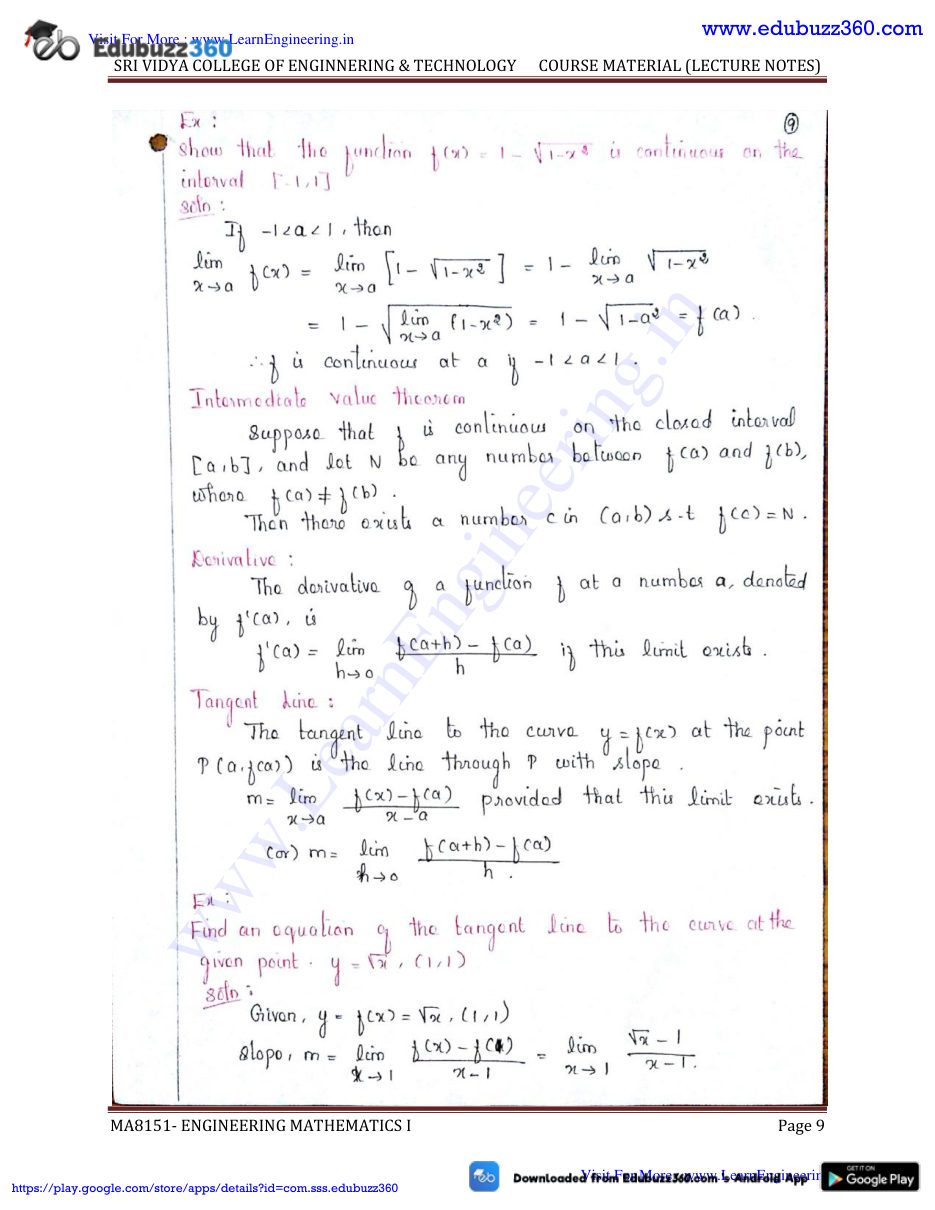 Visit For More : www.LearnEngineering.in
Edubuzz360
www.edubuzz360.com
SRI VIDYA COLLEGE OF ENGINNERING & TECHNOLOGY COURSE MATERIAL (LECTURE NOTES)
Ex :
9
Show that the function f(x) = 1 - √(1-x²) is continuous on the
interval [-1,1]
Soln :
If -1<a<1, then
lim x→a f(x) = lim x→a [1 - √(1-x²)] = 1 - lim x→a √(1-x²)
= 1 - √(lim x→a (1-x²)) = 1 - √(1-a²) = f(a).
∴ f is continuous at a if -1<a<1.
Intermediate value theorem
Suppose that f is continuous on the closed interval
[a,b], and let N be any number between f(a) and f(b),
where f(a) ≠ f(b).
Then there exists a number c in (a,b) s.t f(c) = N.
Derivative :
The derivative of a function f at a number a, denoted
by f'(a), is
f'(a) = lim h→0 (f(a+h) - f(a))/h if this limit exists.
Tangent Line :
The tangent line to the curve y = f(x) at the point
P(a,f(a)) is the line through P with slope.
m = lim x→a (f(x) - f(a))/(x-a) provided that this limit exists.
(or) m = lim h→0 (f(a+h) - f(a))/h.
Ex :
Find an equation of the tangent line to the curve at the
given point. y = √x, (1,1)
Soln :
Given, y = f(x) = √x, (1,1)
Slope, m = lim x→1 (f(x) - f(1))/(x-1) = lim x→1 (√x - 1)/(x-1).
www.LearnEngineering.in
MA8151- ENGINEERING MATHEMATICS I Page 9
https://play.google.com/store/apps/details?id=com.sss.edubuzz360
Downloaded from EduBuzz360.com's Android App
Visit For More : www.LearnEngineering
GET IT ON
Google Play